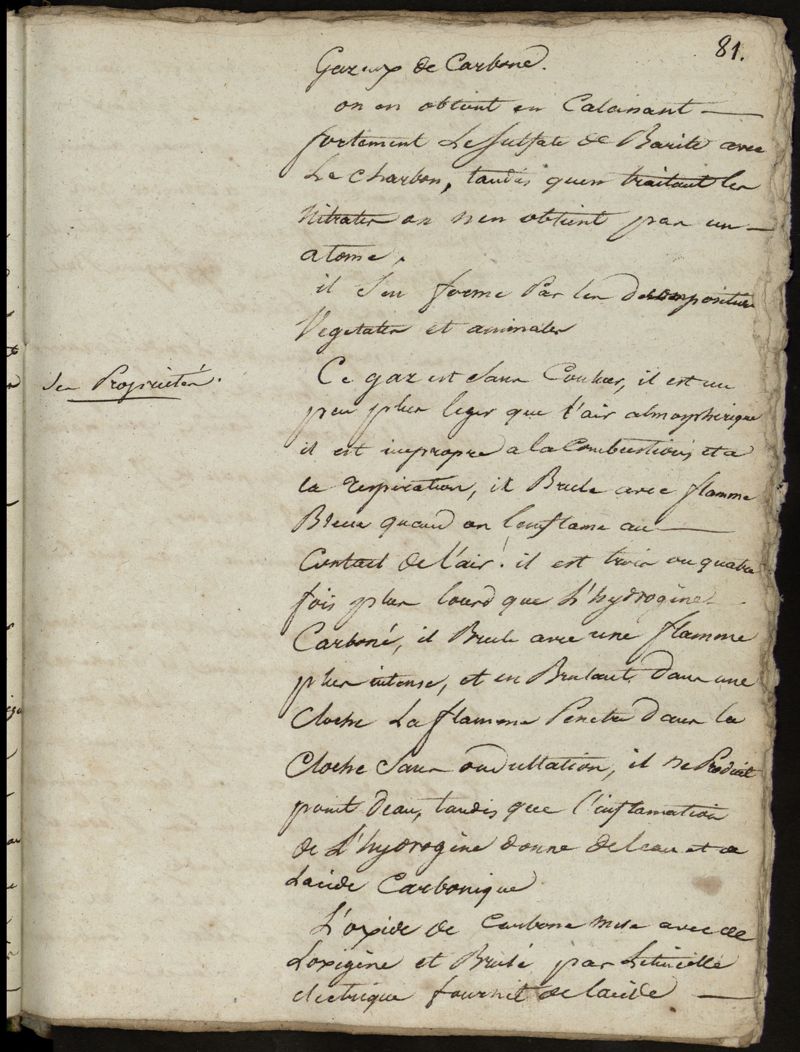 81.
Gazeux de Carbone.
on en obtient en Calcinant
fortement Le Sulfate de Barite avec
Le charbon, tandis quen traitant les
Nitrates on nen obtient pas un
atome,
il Sen forme Par les decomposition
Vegetales et animales
Ses Proprietés.
Ce gaz est Sans Couleur, il est un
peu plus leger que l'air atmospherique
il est impropre a la Combustion et a
la respiration, il Brule avec flamme
Bleue quand on lenflame au
Contact de l'air! il est trois ou quatre
fois plus lourd que L'hydrogène
Carboné, il Brule avec une flamme
plus intense, et en Brulant dans une
Cloche La flamme Penetre dans la
Cloche Sans ondullation, il ne Produit
point deau, tandis que l'inflamation
de L'hydrogène donne de leau et de
Lacide Carbonique
L'oxide de Carbone mele avec de
Loxigène et Brulé par Letincelle
electrique fournit de lacide